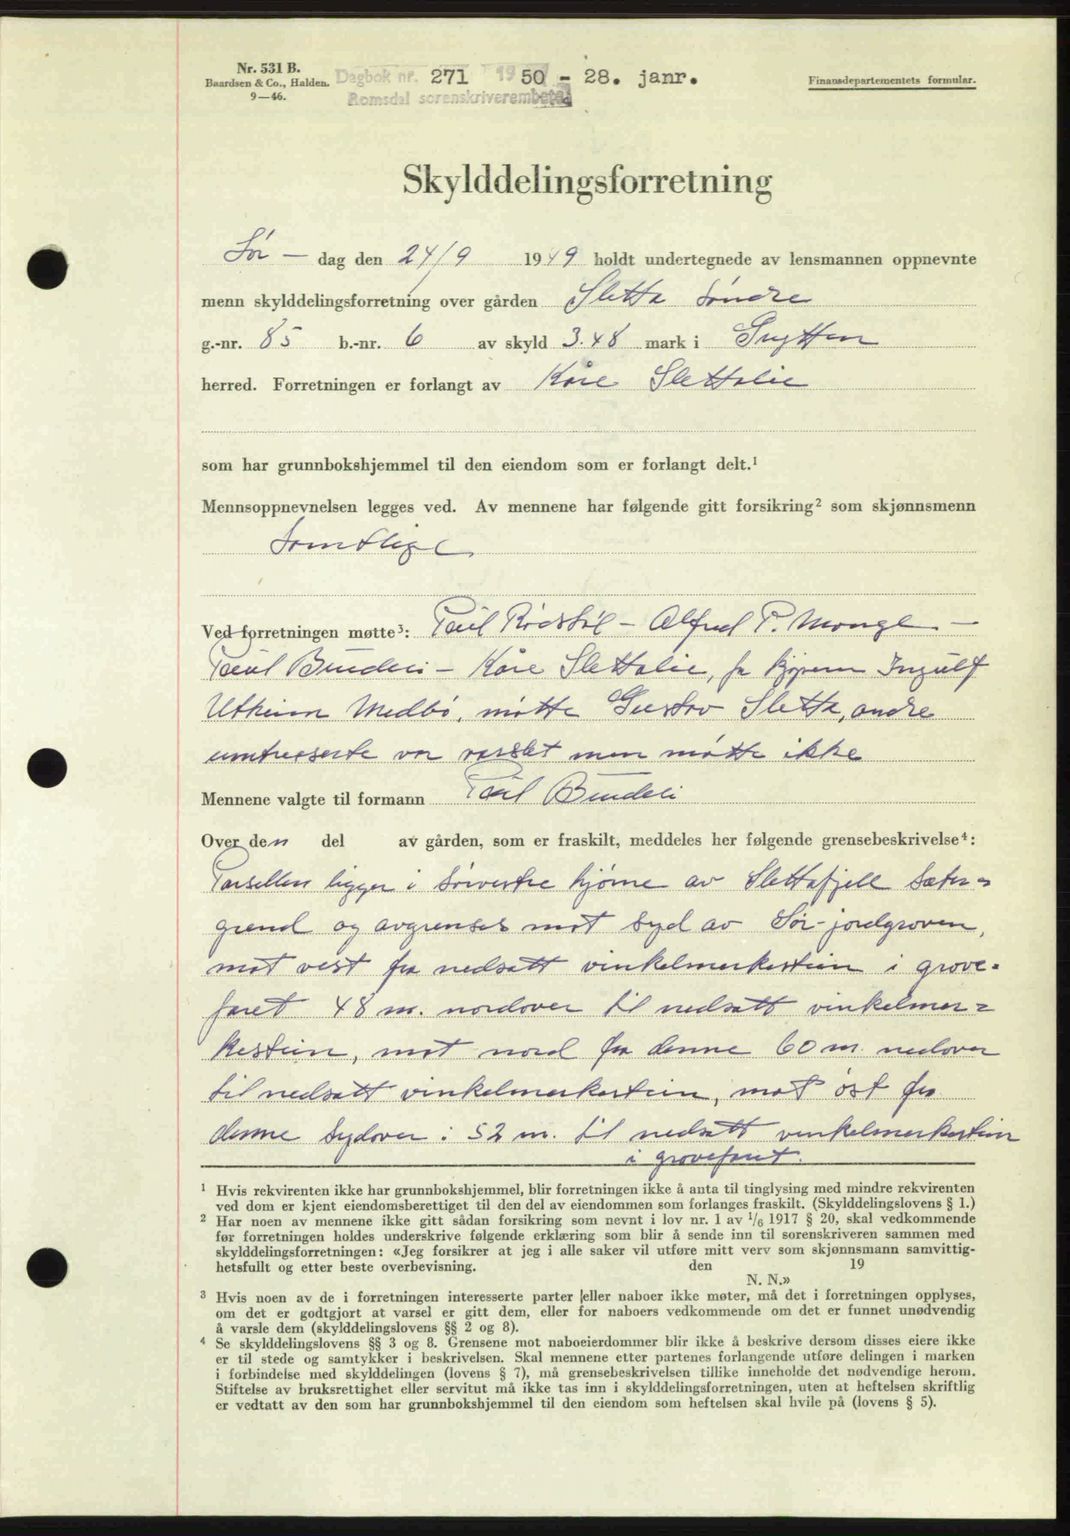 Nr. 531 B.
Baardsen & Co., Halden.
9—46.
Dagbok nr. 271 1950 - 28. janr.
Romsdal sorenskriverembete
Finansdepartementets formular.
Skylddelingsforretning
Lør — dag den 24/9 1949 holdt undertegnede av lensmannen oppnevnte
menn skylddelingsforretning over gården Sletta søndre
g.-nr. 85 b.-nr. 6 av skyld 3.48 mark i Grytten
herred. Forretningen er forlangt av Kåre Slettalie
som har grunnbokshjemmel til den eiendom som er forlangt delt.¹
Mennsoppnevnelsen legges ved. Av mennene har følgende gitt forsikring² som skjønnsmenn
Samtlige
Ved forretningen møtte³: Paul Rødstøl – Alfred P. Monge –
Paul Bruderi – Kåre Slettalie, for kjøperen Ingulf
Utheim Medbø, møtte Gustav Sletta, andre
var varslet men møtte ikke
Mennene valgte til formann Paul
Over den del av gården, som er fraskilt, meddeles her følgende grensebeskrivelse⁴:
Parsellen ligger i sørvestre hjørne av Slettafjell sæter-
grend og avgrenses mot syd av Sør-jordgroven,
mot vest fra nedsatt vinkelmerkestein i grove-
faret 48 m. nordover til nedsatt vinkelmer-
kestein, mot nord fra denne 60 m. nedover
til nedsatt vinkelmerkestein, mot øst fra
denne sydover i 52 m. til nedsatt vinkelmerkestein
i grovefaret.
¹ Hvis rekvirenten ikke har grunnbokshjemmel, blir forretningen ikke å anta til tinglysing med mindre rekvirenten
ved dom er kjent eiendomsberettiget til den del av eiendommen som forlanges fraskilt. (Skylddelingslovens § 1.)
² Har noen av mennene ikke gitt sådan forsikring som nevnt i lov nr. 1 av 1/6 1917 § 20, skal vedkommende
før forretningen holdes underskrive følgende erklæring som blir å sende inn til sorenskriveren sammen med
skylddelingsforretningen: «Jeg forsikrer at jeg i alle saker vil utføre mitt verv som skjønnsmann samvittig-
hetsfullt og etter beste overbevisning. den 19
N. N.»
³ Hvis noen av de i forretningen interesserte parter eller naboer ikke møter, må det i forretningen opplyses,
om det er godtgjort at varsel er gitt dem, eller for naboers vedkommende om det er funnet unødvendig
å varsle dem (skylddelingslovens §§ 2 og 8).
⁴ Se skylddelingslovens §§ 3 og 8. Grensene mot naboeierdommer blir ikke å beskrive dersom disses eiere ikke
er til stede og samtykker i beskrivelsen. Skal mennene etter partenes forlangende utføre delingen i marken
i forbindelse med skylddelingen (lovens § 7), må grensebeskrivelsen tillike inneholde det nødvendige herom.
Stiftelse av bruksrettighet eller servitut må ikke tas inn i skylddelingsforretningen, uten at heftelsen skriftlig
er vedtatt av den som har grunnbokshjemmel til den eiendom som heftelsen skal hvile på (lovens § 5).